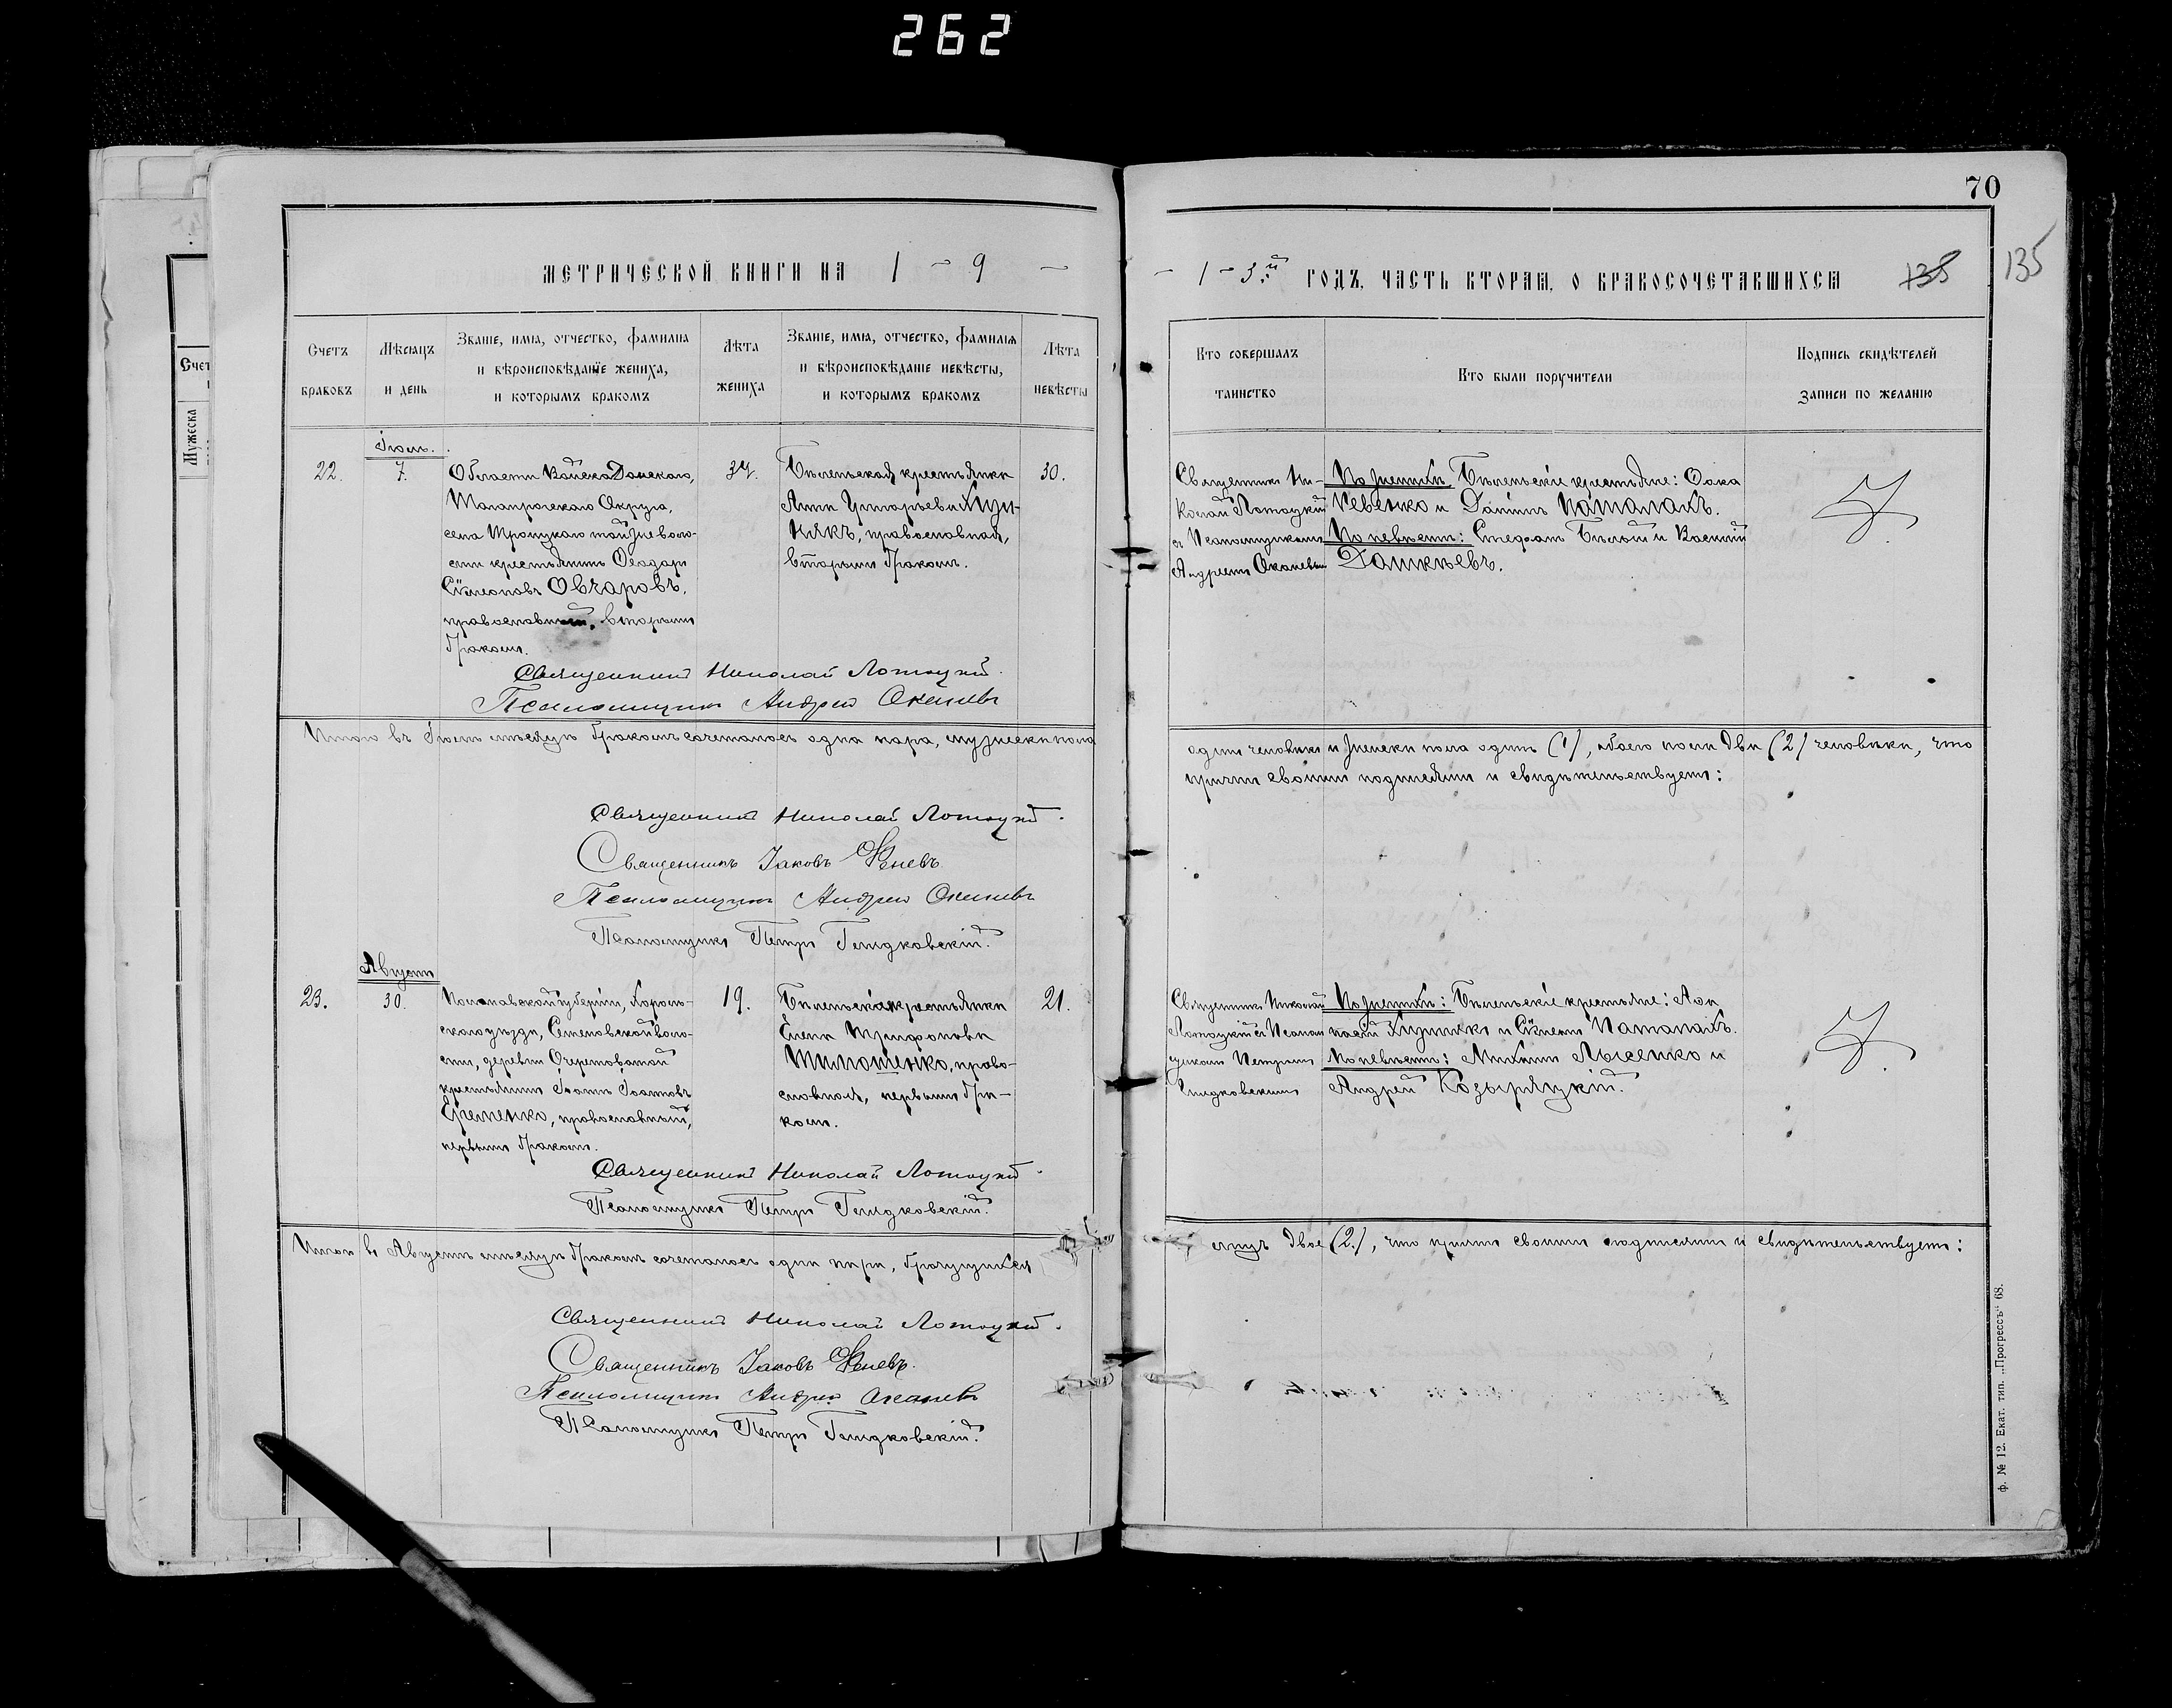 262
70
135
135
МЕТРИЧЕСКОЙ КНИГИ НА 1 – 9 –
– 1 – 3й ГОДЪ, ЧАСТЬ ВТОРАЯ, О БРАКОСОЧЕТАВШИХСЯ
Счетъ
браковъ
Мѣсяцъ
и день
Званіе, имя, отчество, фамилія
и вѣроисповѣданіе жениха,
и которымъ бракомъ
Лѣта
жениха
Званіе, имя, отчество, фамилія
и вѣроисповѣданіе невѣсты,
и которымъ бракомъ
Лѣта
невѣсты
Кто совершалъ
таинство
Кто были поручители
Подпись свидѣтелей
записи по желанію
Іюль.
22.
7.
Области Войска Донскаго,
Таганрогскаго Округа,
села Троицкаго той же воло-
сти крестьянинъ Ѳеодоръ
Симеоновъ Овчаровъ,
православный, вторымъ
бракомъ.
34.
Бѣленьская крестьянка
Анна Григорьева
православная,
вторымъ бракомъ.
30.
Священникъ Ни-
колай Лотоцкій
съ Псаломщикомъ
Андреемъ
По женихѣ: Бѣленьскіе крестьяне: Ѳока
Чевенко и Даніилъ Паталахъ.
По невѣстѣ: Стефанъ Бѣлый и Василій
Священникъ Николай Лотоцкій.
Псаломщикъ Андрей
Итого въ Іюлѣ мѣсяцѣ бракомъ сочеталось одна пара, мужеска пола
одинъ человѣкъ и женска пола одинъ (1), обоего пола два (2) человѣка, что
причтъ своимъ подписаніемъ и свидѣтельствуетъ:
Священникъ Николай Лотоцкій.
Священникъ Іаковъ
Псаломщикъ Андрей
Псаломщикъ Петръ Гнидковскій.
Августъ
23.
30.
Полтавской губерніи, Хороль-
скаго уѣзда, Семеновской воло-
сти, деревни Очеретоватой
крестьянинъ Іоаннъ Іоанновъ
Еременко, православный,
первымъ бракомъ.
19.
Бѣленьская крестьянка
Елена Трифонова
Тимошенко, право-
славная, первымъ бра-
комъ.
21.
Священникъ Николай
Лотоцкій съ Псалом-
щикомъ Петромъ
Гнидковскимъ
По женихѣ: Бѣленьскіе крестьяне:
и Симеонъ Паталахъ.
По невѣстѣ: Михаилъ Лысенко и
Андрей Козыряцкій.
Священникъ Николай Лотоцкій.
Псаломщикъ Петръ Гнидковскій.
Итого въ Августѣ мѣсяцѣ бракомъ сочеталось одна пара, брачущихся
лицъ двое (2), что причтъ своимъ подписаніемъ и свидѣтельствуетъ:
Священникъ Николай Лотоцкій.
Священникъ Іаковъ
Псаломщикъ Андрей
Псаломщикъ Петръ Гнидковскій.
Ф. № 12. Екат. тип. „Прогрессъ“ 68.
Счет
Мужеска